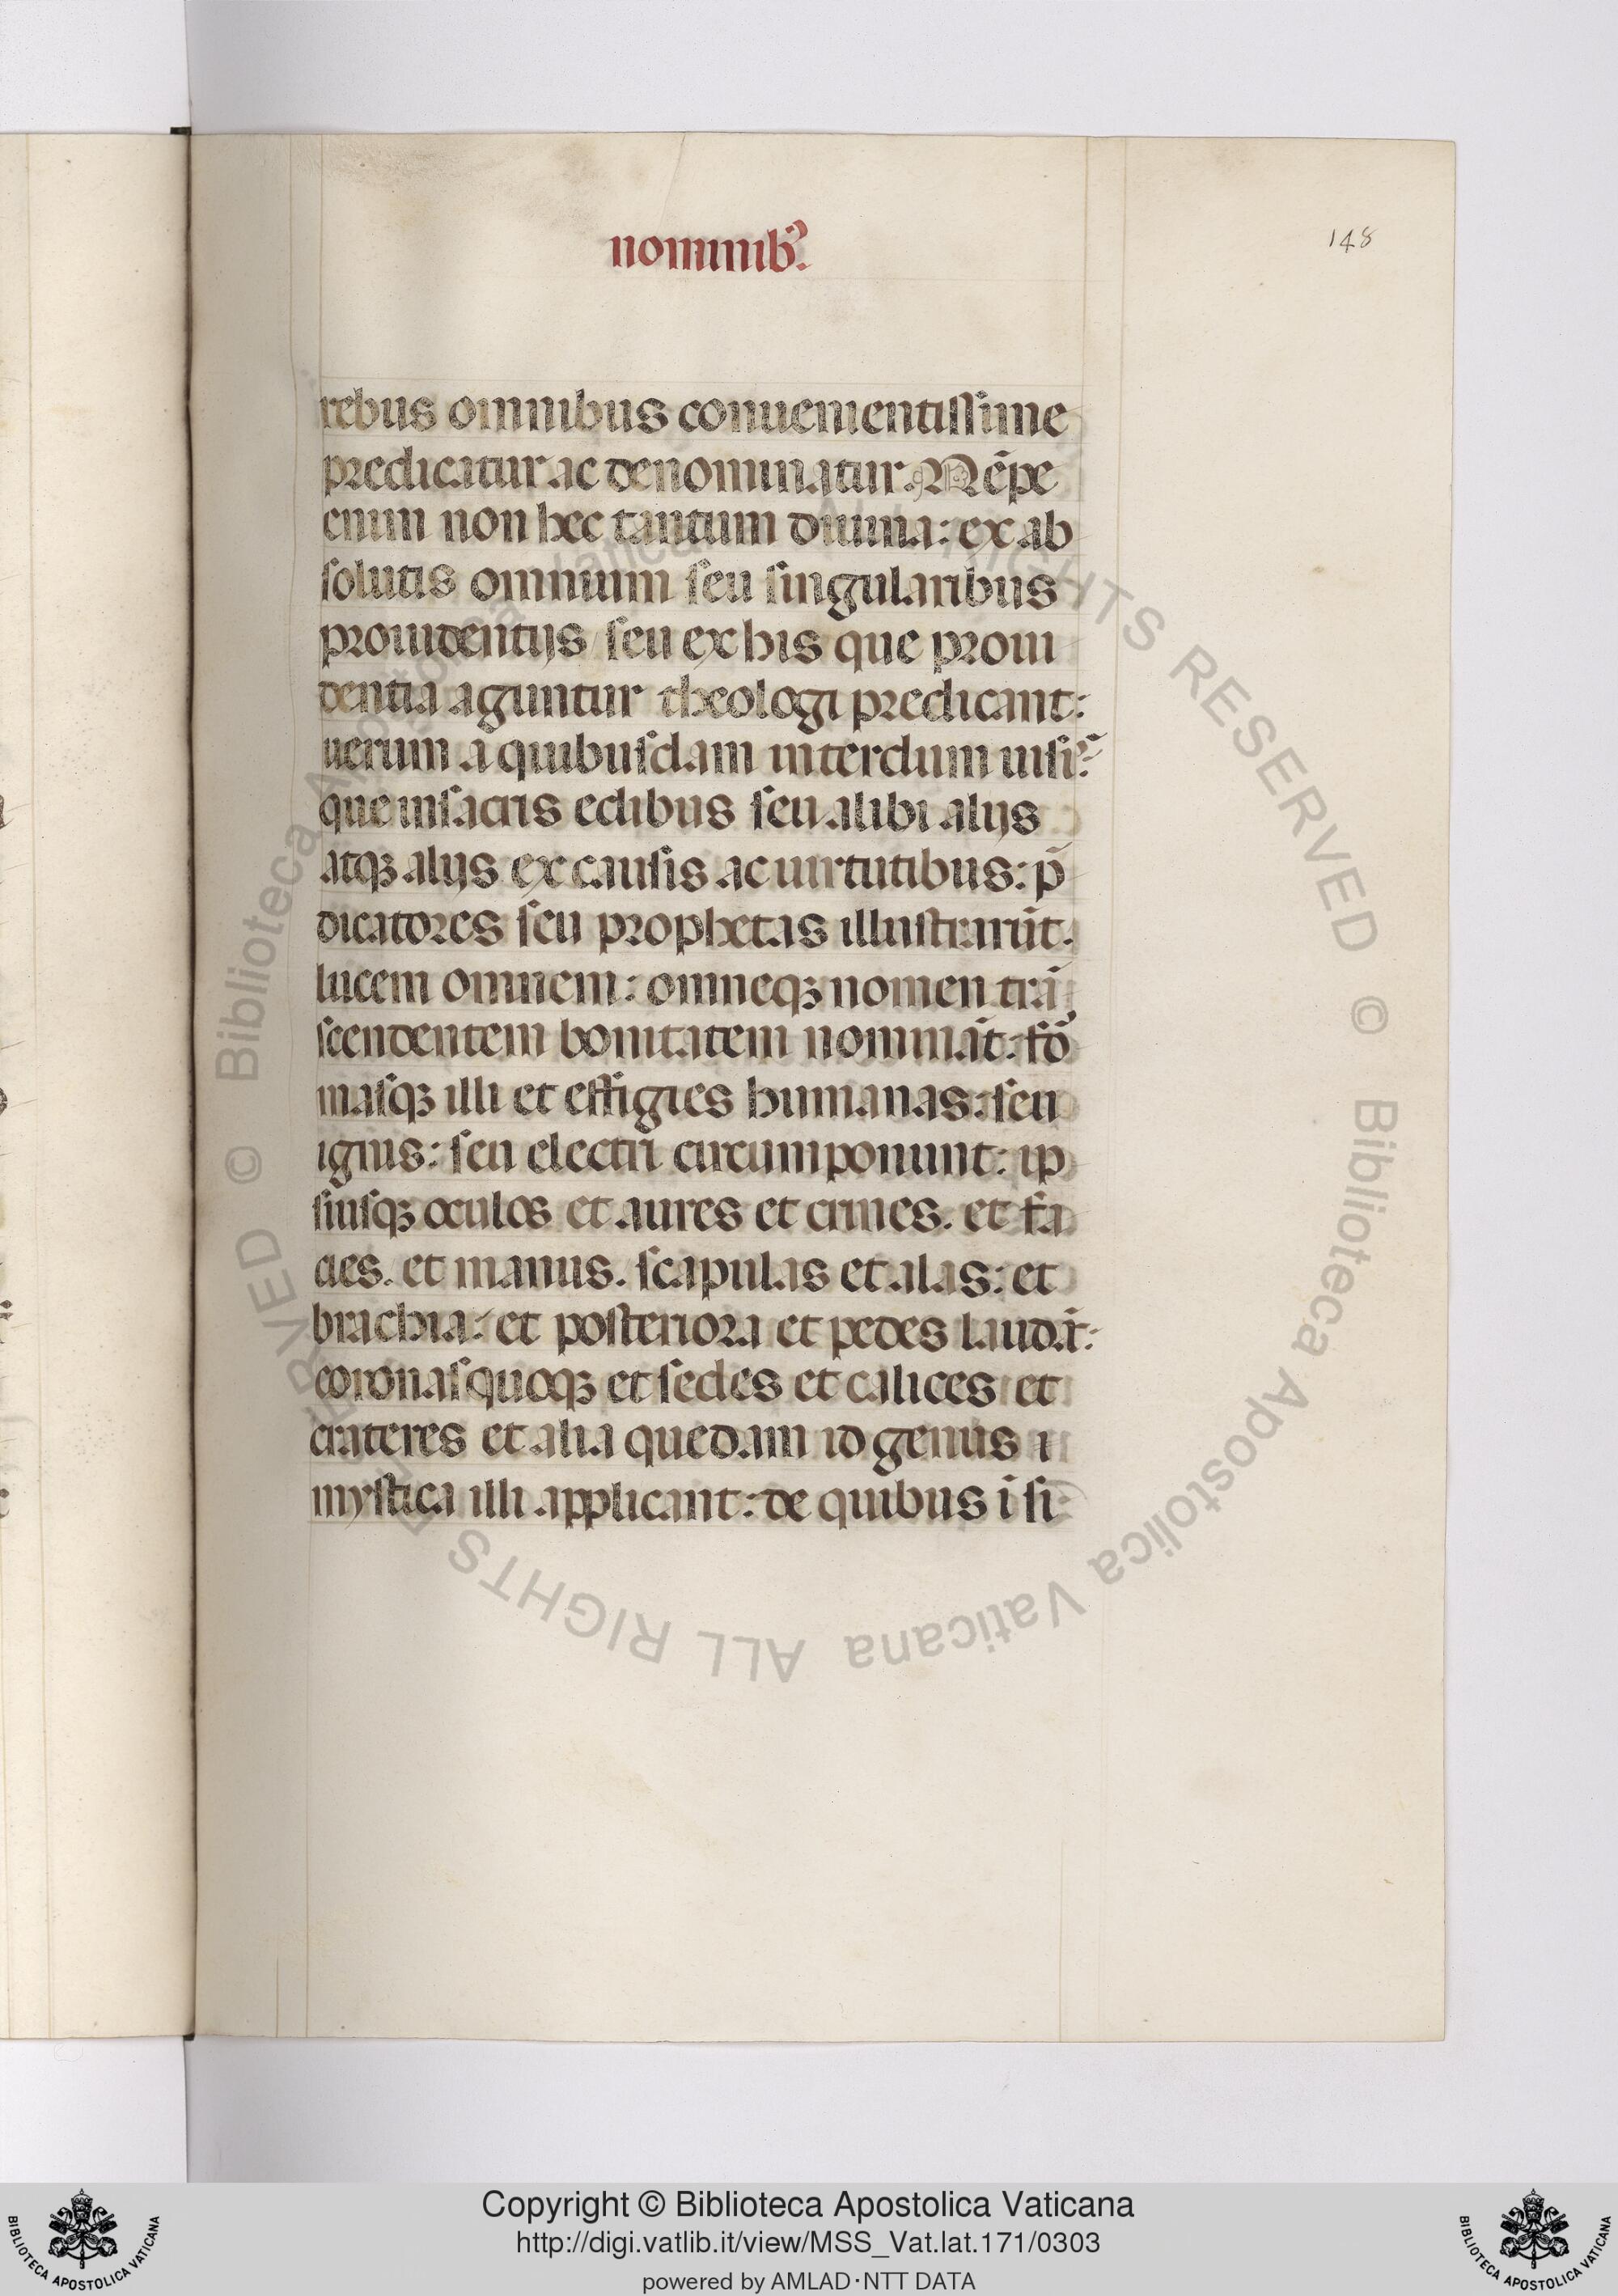 nominib⁹.
148
rebus omnibus conuenientissime
predicatur ac denominatur. Nēpe
enim non hec tantum diuina: ex ab
solutis omnium seu singularibus
prouidentijs seu ex his que proui
dentia aguntur theologi predicant:
uerum a quibusdam interdum uisi⁹.
que in sacris edibus seu alibi alijs
atqꝫ alijs ex causis ac uirtutibus: p̄
dicatores seu prophetas illustrarūt.
lucem omnem: omneqꝫ nomen trā
scendentem bonitatem nomināt: fo᷒
masqꝫ illi et effigies humanas: seu
ignis: seu electri circumponunt: ip
siusqꝫ oculos et aures et crines. et fa
cies. et manus. scapulas et alas: et
brachia: et posteriora et pedes laudāt:
coronas quoqꝫ et sedes et calices et
crateres et alia quedam id genus
mystica illi applicant: de quibus ī si
Copyright © Biblioteca Apostolica Vaticana
http://digi.vatlib.it/view/MSS_Vat.lat.171/0303
powered by AMLAD·NTT DATA
BIBLIOTECA APOSTOLICA VATICANA
BIBLIOTECA APOSTOLICA VATICANA
© Biblioteca Apostolica Vaticana ALL RIGHTS RESERVED
© Biblioteca Apostolica Vaticana ALL RIGHTS RESERVED